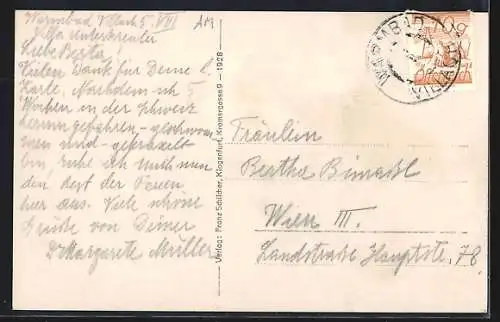 Warmbad Villach 5. VIII
Villa Unterkreuter
Liebe Berta!
Vielen Dank für Deine l.
Karte. Nachdem ich 5
Wochen in der Schweiz
herumgefahren -
men und -
bin, ruhe ich mich nun
den Rest der Ferien
hier aus. Viele schöne
Grüße von Deiner
Dr Margarete Müller
Verlag: Franz Schilcher, Klagenfurt, Kramergasse 9 — 1928
WARMBAD VILLACH
Fräulein
Bertha
Wien III.
Landstraße Hauptstr. 7